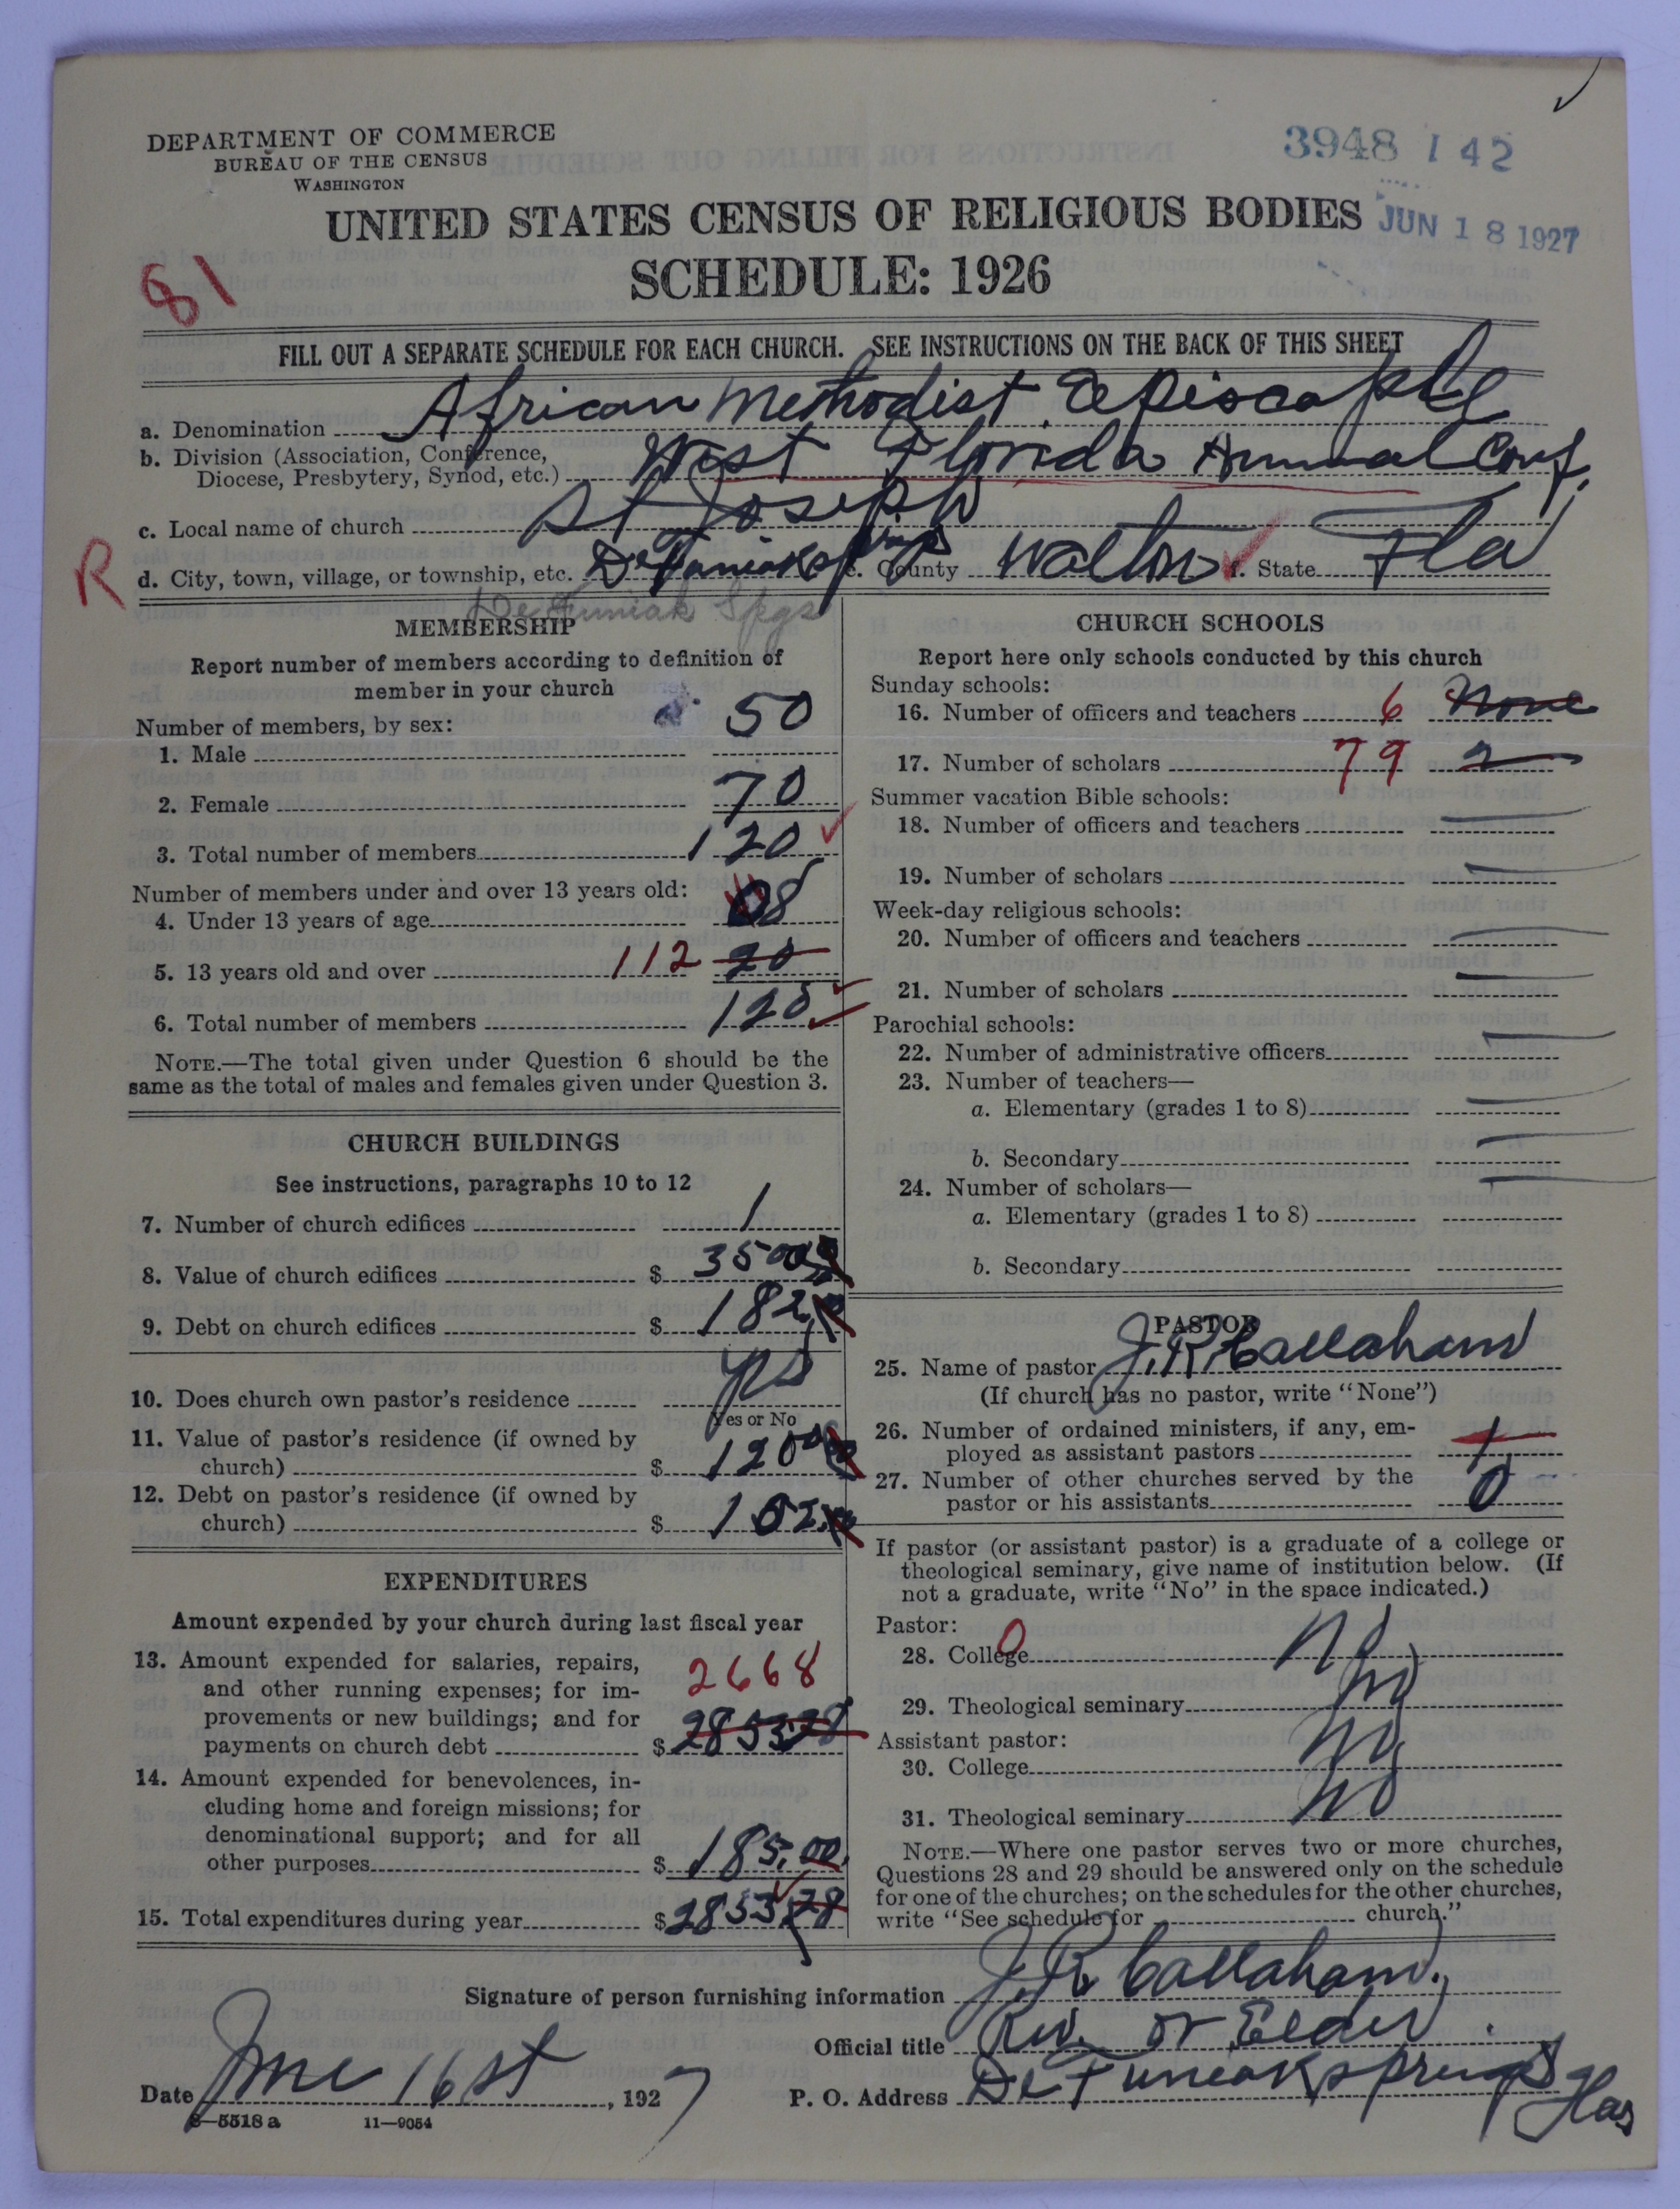 DEPARTMENT OF COMMERCE
BUREAU OF THE CENSUS
WASHINGTON
3948 142
JUN 18 1927
UNITED STATES CENSUS OF RELIGIOUS BODIES
SCHEDULE: 1926
81
FILL OUT A SEPARATE SCHEDULE FOR EACH CHURCH. SEE INSTRUCTIONS ON THE BACK OF THIS SHEET
a. Denomination African Methodist Episcople
b. Division (Association, Conference, Diocese, Presbytery, Synod, etc.) West Florida Annual Conf.
c. Local name of church St Joseph
R
d. City, town, village, or township, etc. DeFuniak springs e. County Walton f. State Fla
De Funiak Spgs
MEMBERSHIP
Report number of members according to definition of
member in your church
Number of members, by sex:
1. Male 50
2. Female 70
3. Total number of members 120
Number of members under and over 13 years old:
4. Under 13 years of age 08
5. 13 years old and over 112 20
6. Total number of members 120
NOTE.—The total given under Question 6 should be the
same as the total of males and females given under Question 3.
CHURCH BUILDINGS
See instructions, paragraphs 10 to 12
7. Number of church edifices 1
8. Value of church edifices $ 3500
9. Debt on church edifices $ 182
10. Does church own pastor's residence yes
Yes or No
11. Value of pastor's residence (if owned by
church) $ 1200
12. Debt on pastor's residence (if owned by
church) $
EXPENDITURES
Amount expended by your church during last fiscal year
13. Amount expended for salaries, repairs,
and other running expenses; for im-
provements or new buildings; and for
payments on church debt $ 2668 2853.28
14. Amount expended for benevolences, in-
cluding home and foreign missions; for
denominational support; and for all
other purposes $ 185.00
15. Total expenditures during year $ 2853.28
CHURCH SCHOOLS
Report here only schools conducted by this church
Sunday schools:
16. Number of officers and teachers 6 None
17. Number of scholars 79 2
Summer vacation Bible schools:
18. Number of officers and teachers
19. Number of scholars
Week-day religious schools:
20. Number of officers and teachers
21. Number of scholars
Parochial schools:
22. Number of administrative officers
23. Number of teachers—
a. Elementary (grades 1 to 8)
b. Secondary
24. Number of scholars—
a. Elementary (grades 1 to 8)
b. Secondary
PASTOR
25. Name of pastor J. R. Callaham
(If church has no pastor, write "None")
26. Number of ordained ministers, if any, em-
ployed as assistant pastors 1
27. Number of other churches served by the
pastor or his assistants 0
If pastor (or assistant pastor) is a graduate of a college or
theological seminary, give name of institution below. (If
not a graduate, write "No" in the space indicated.)
Pastor:
28. College 0 No
29. Theological seminary No
Assistant pastor:
30. College No
31. Theological seminary No
NOTE.—Where one pastor serves two or more churches,
Questions 28 and 29 should be answered only on the schedule
for one of the churches; on the schedules for the other churches,
write "See schedule for church."
Signature of person furnishing information J. R. Callaham.
Official title Rev. or Elder.
Date June 16 st, 1927
P. O. Address DeFuneak springs Flas
8—5518 a 11—9054